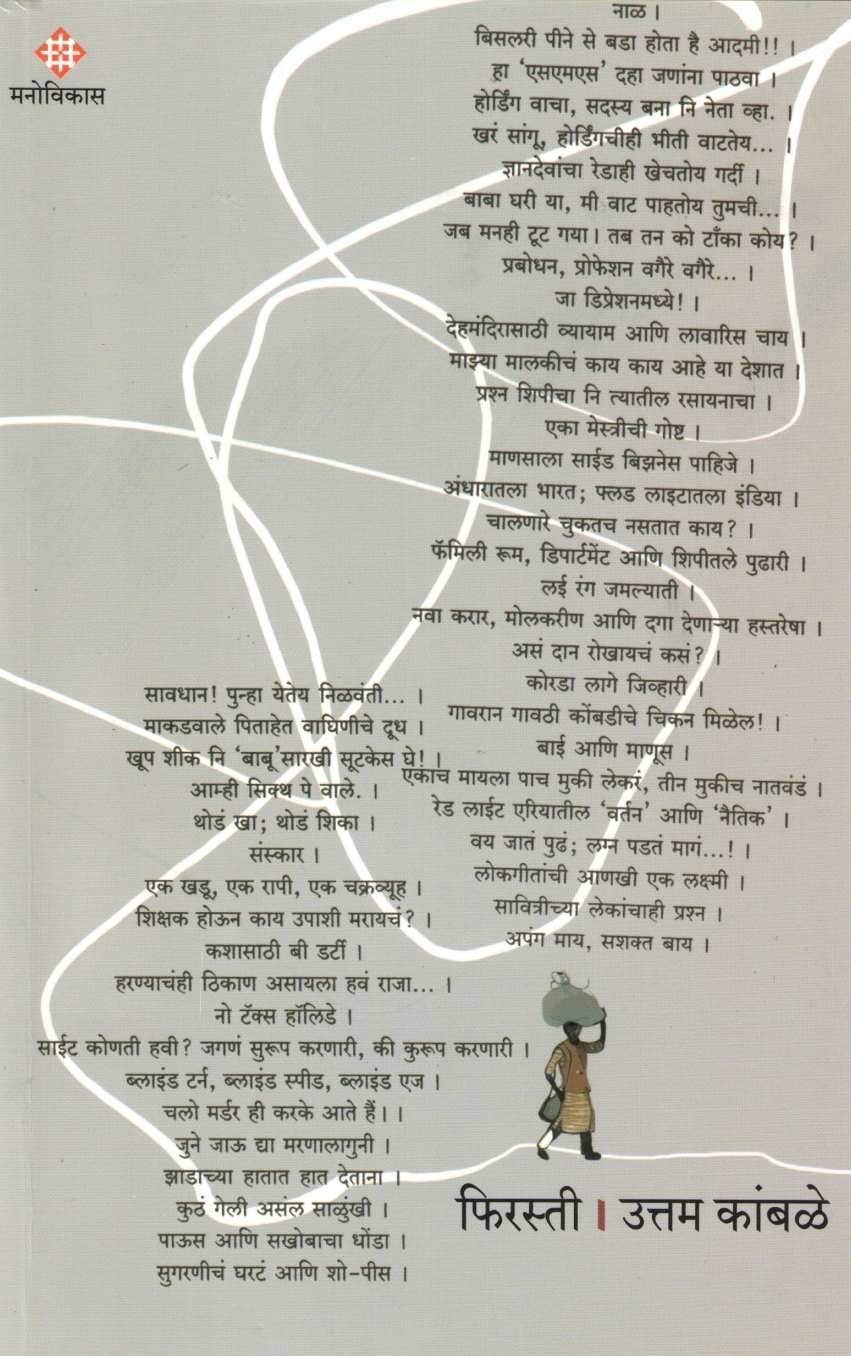 मनोविकास
नाळ ।
बिसलरी पीने से बडा होता है आदमी!! ।
हा ‘एसएमएस’ दहा जणांना पाठवा ।
होर्डिंग वाचा, सदस्य बना नि नेता व्हा. ।
खरं सांगू, होर्डिंगचीही भीती वाटतेय... ।
ज्ञानदेवांचा रेडाही खेचतोय गर्दी ।
बाबा घरी या, मी वाट पाहतोय तुमची... ।
जब मनही टूट गया। तब तन को टाँका कोय? ।
प्रबोधन, प्रोफेशन वगैरे वगैरे... ।
जा डिप्रेशनमध्ये! ।
देहमंदिरासाठी व्यायाम आणि लावारिस चाय ।
माझ्या मालकीचं काय काय आहे या देशात ।
प्रश्न शिपीचा नि त्यातील रसायनाचा ।
एका मेस्त्रीची गोष्ट ।
माणसाला साईड बिझनेस पाहिजे ।
अंधारातला भारत; फ्लड लाइटातला इंडिया ।
चालणारे चुकतच नसतात काय? ।
फॅमिली रूम, डिपार्टमेंट आणि शिपीतले पुढारी ।
लई रंग जमल्याती ।
नवा करार, मोलकरीण आणि दगा देणाऱ्या हस्तरेषा ।
असं दान रोखायचं कसं? ।
कोरडा लागे जिव्हारी ।
गावरान गावठी कोंबडीचे चिकन मिळेल! ।
बाई आणि माणूस ।
एकाच मायला पाच मुकी लेकरं, तीन मुकीच नातवंडं ।
रेड लाईट एरियातील ‘वर्तन’ आणि ‘नैतिक’ ।
वय जातं पुढं; लग्न पडतं मागं...! ।
लोकगीतांची आणखी एक लक्ष्मी ।
सावित्रीच्या लेकांचाही प्रश्न ।
अपंग माय, सशक्त बाय ।
सावधान! पुन्हा येतेय निळवंती... ।
माकडवाले पिताहेत वाघिणीचे दूध ।
खूप शीक नि ‘बाबू’सारखी सूटकेस घे! ।
आम्ही सिक्थ पे वाले. ।
थोडं खा; थोडं शिका ।
संस्कार ।
एक खडू, एक रापी, एक चक्रव्यूह ।
शिक्षक होऊन काय उपाशी मरायचं? ।
कशासाठी बी डर्टी ।
हरण्याचंही ठिकाण असायला हवं राजा... ।
नो टॅक्स हॉलिडे ।
साईट कोणती हवी? जगणं सुरूप करणारी, की कुरूप करणारी ।
ब्लाइंड टर्न, ब्लाइंड स्पीड, ब्लाइंड एज ।
चलो मर्डर ही करके आते हैं। ।
जुने जाऊ द्या मरणालागुनी ।
झाडाच्या हातात हात देताना ।
कुठं गेली असंल साळुंखी ।
पाऊस आणि सखोबाचा धोंडा ।
सुगरणीचं घरटं आणि शो-पीस ।
फिरस्ती । उत्तम कांबळे